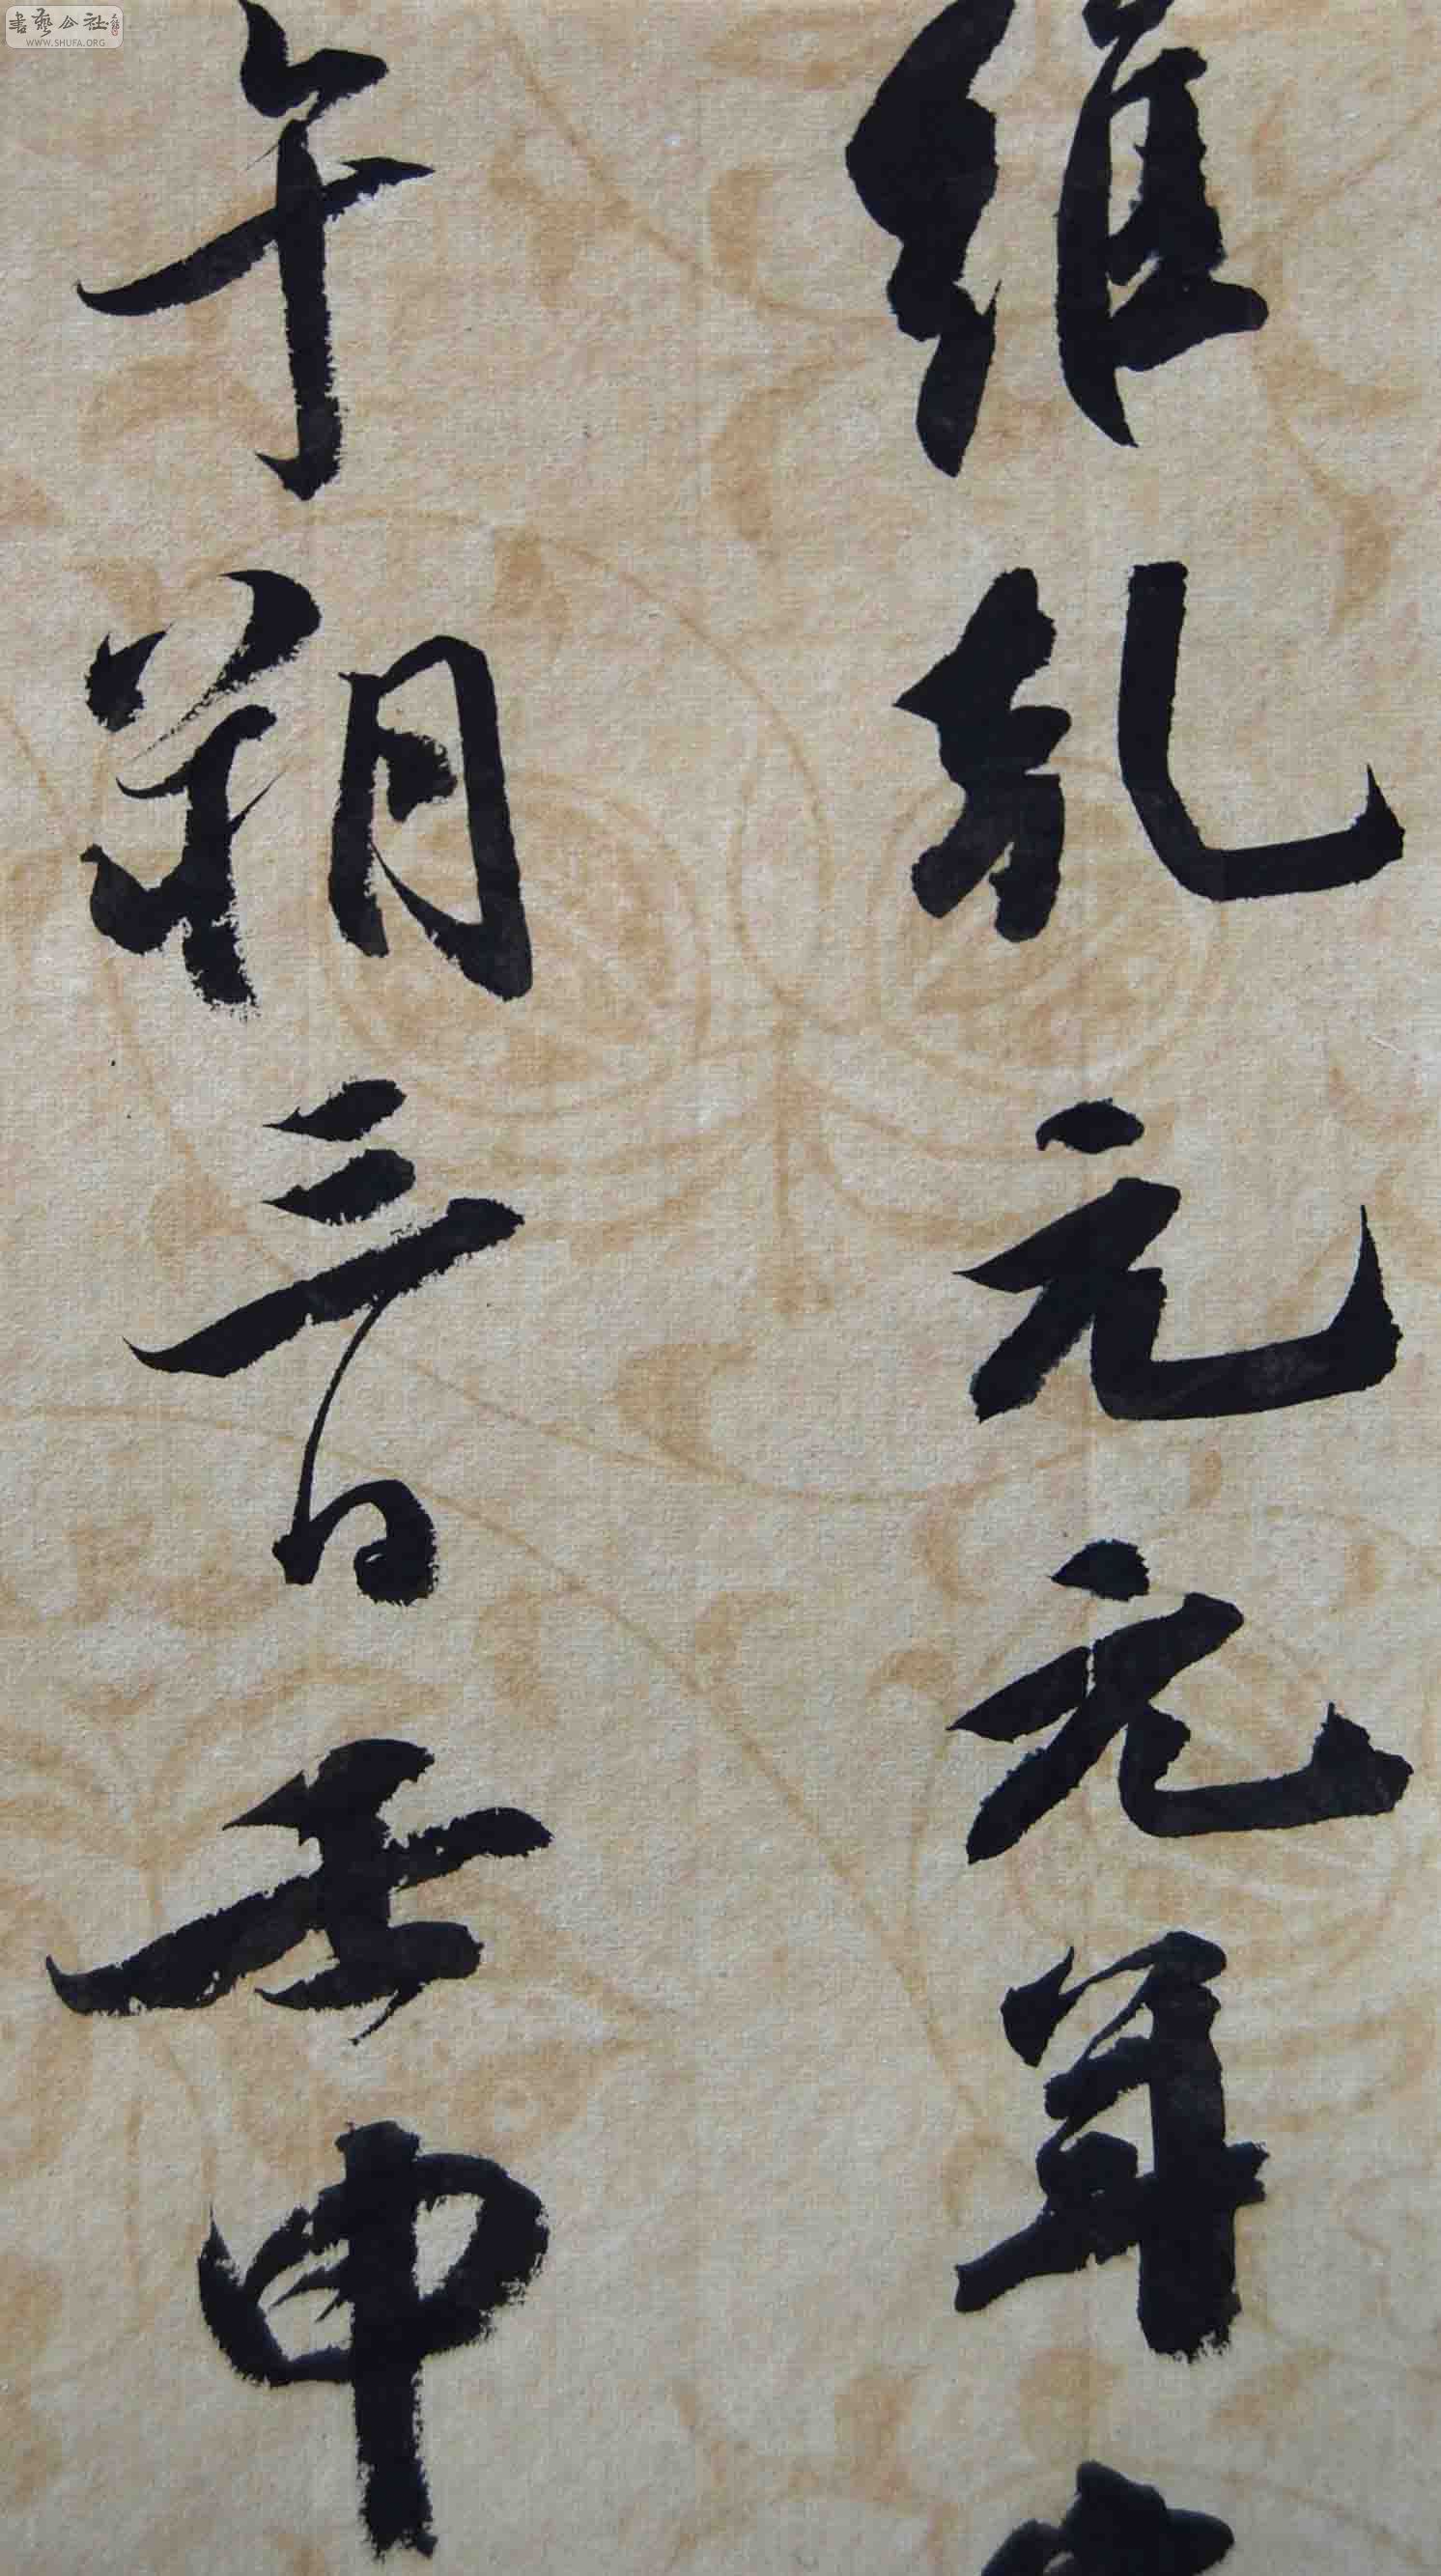 維乹元元年
午朔三日壬申
書藝公社
WWW.SHUFA.ORG